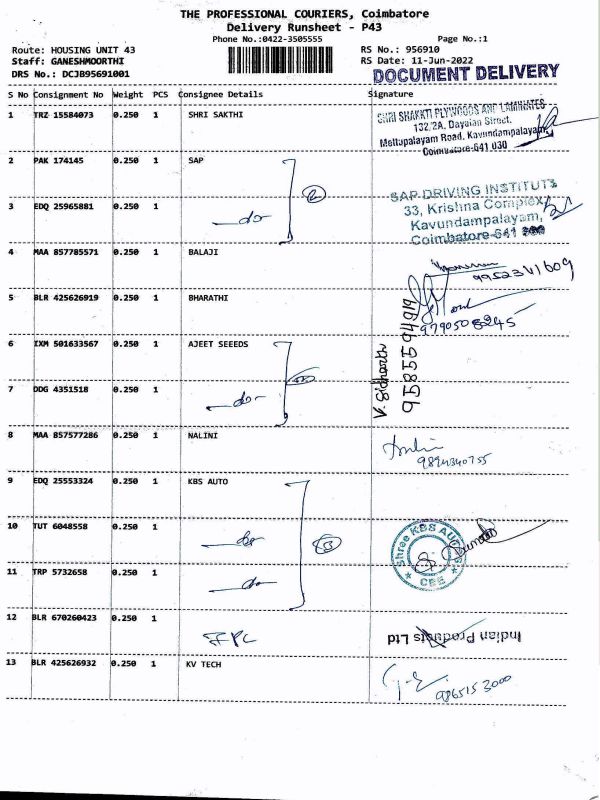 THE PROFESSIONAL COURIERS, Coimbatore
Delivery Runsheet - P43
Phone No.:0422-3505555
Page No.:1
Route: HOUSING UNIT 43
RS No.: 956910
Staff: GANESHMOORTHI
RS Date: 11-Jun-2022
DRS No.: DCJB95691001
DOCUMENT DELIVERY
S No Consignment No Weight PCS Consignee Details Signature
1 TRZ 15584073 0.250 1 SHRI SAKTHI
SHRI SHAKKTI PLYWOODS AND LAMINATES
132/2A, Dayalan Street,
Mettupalayam Road, Kavundampalayam,
Coimbatore-641 030
2 PAK 174145 0.250 1 SAP
3 EDQ 25965881 0.250 1 do
2
SAP DRIVING INSTITUTE
33, Krishna Complex,
Kavundampalayam,
Coimbatore-641
4 MAA 857785571 0.250 1 BALAJI
5 BLR 425626919 0.250 1 BHARATHI
9790508245
6 IXM 501633567 0.250 1 AJEET SEEEDS
7 DDG 4351518 0.250 1 do
V. Sidharth
9585594919
8 MAA 857577286 0.250 1 NALINI
9894340755
9 EDQ 25553324 0.250 1 KBS AUTO
10 TUT 6048558 0.250 1 do
11 TRP 5732658 0.250 1 do
3
Shree KBS AUTOS
CBE
12 BLR 670260423 0.250 1 IPL
Indian Products Ltd
13 BLR 425626932 0.250 1 KV TECH
9865153000